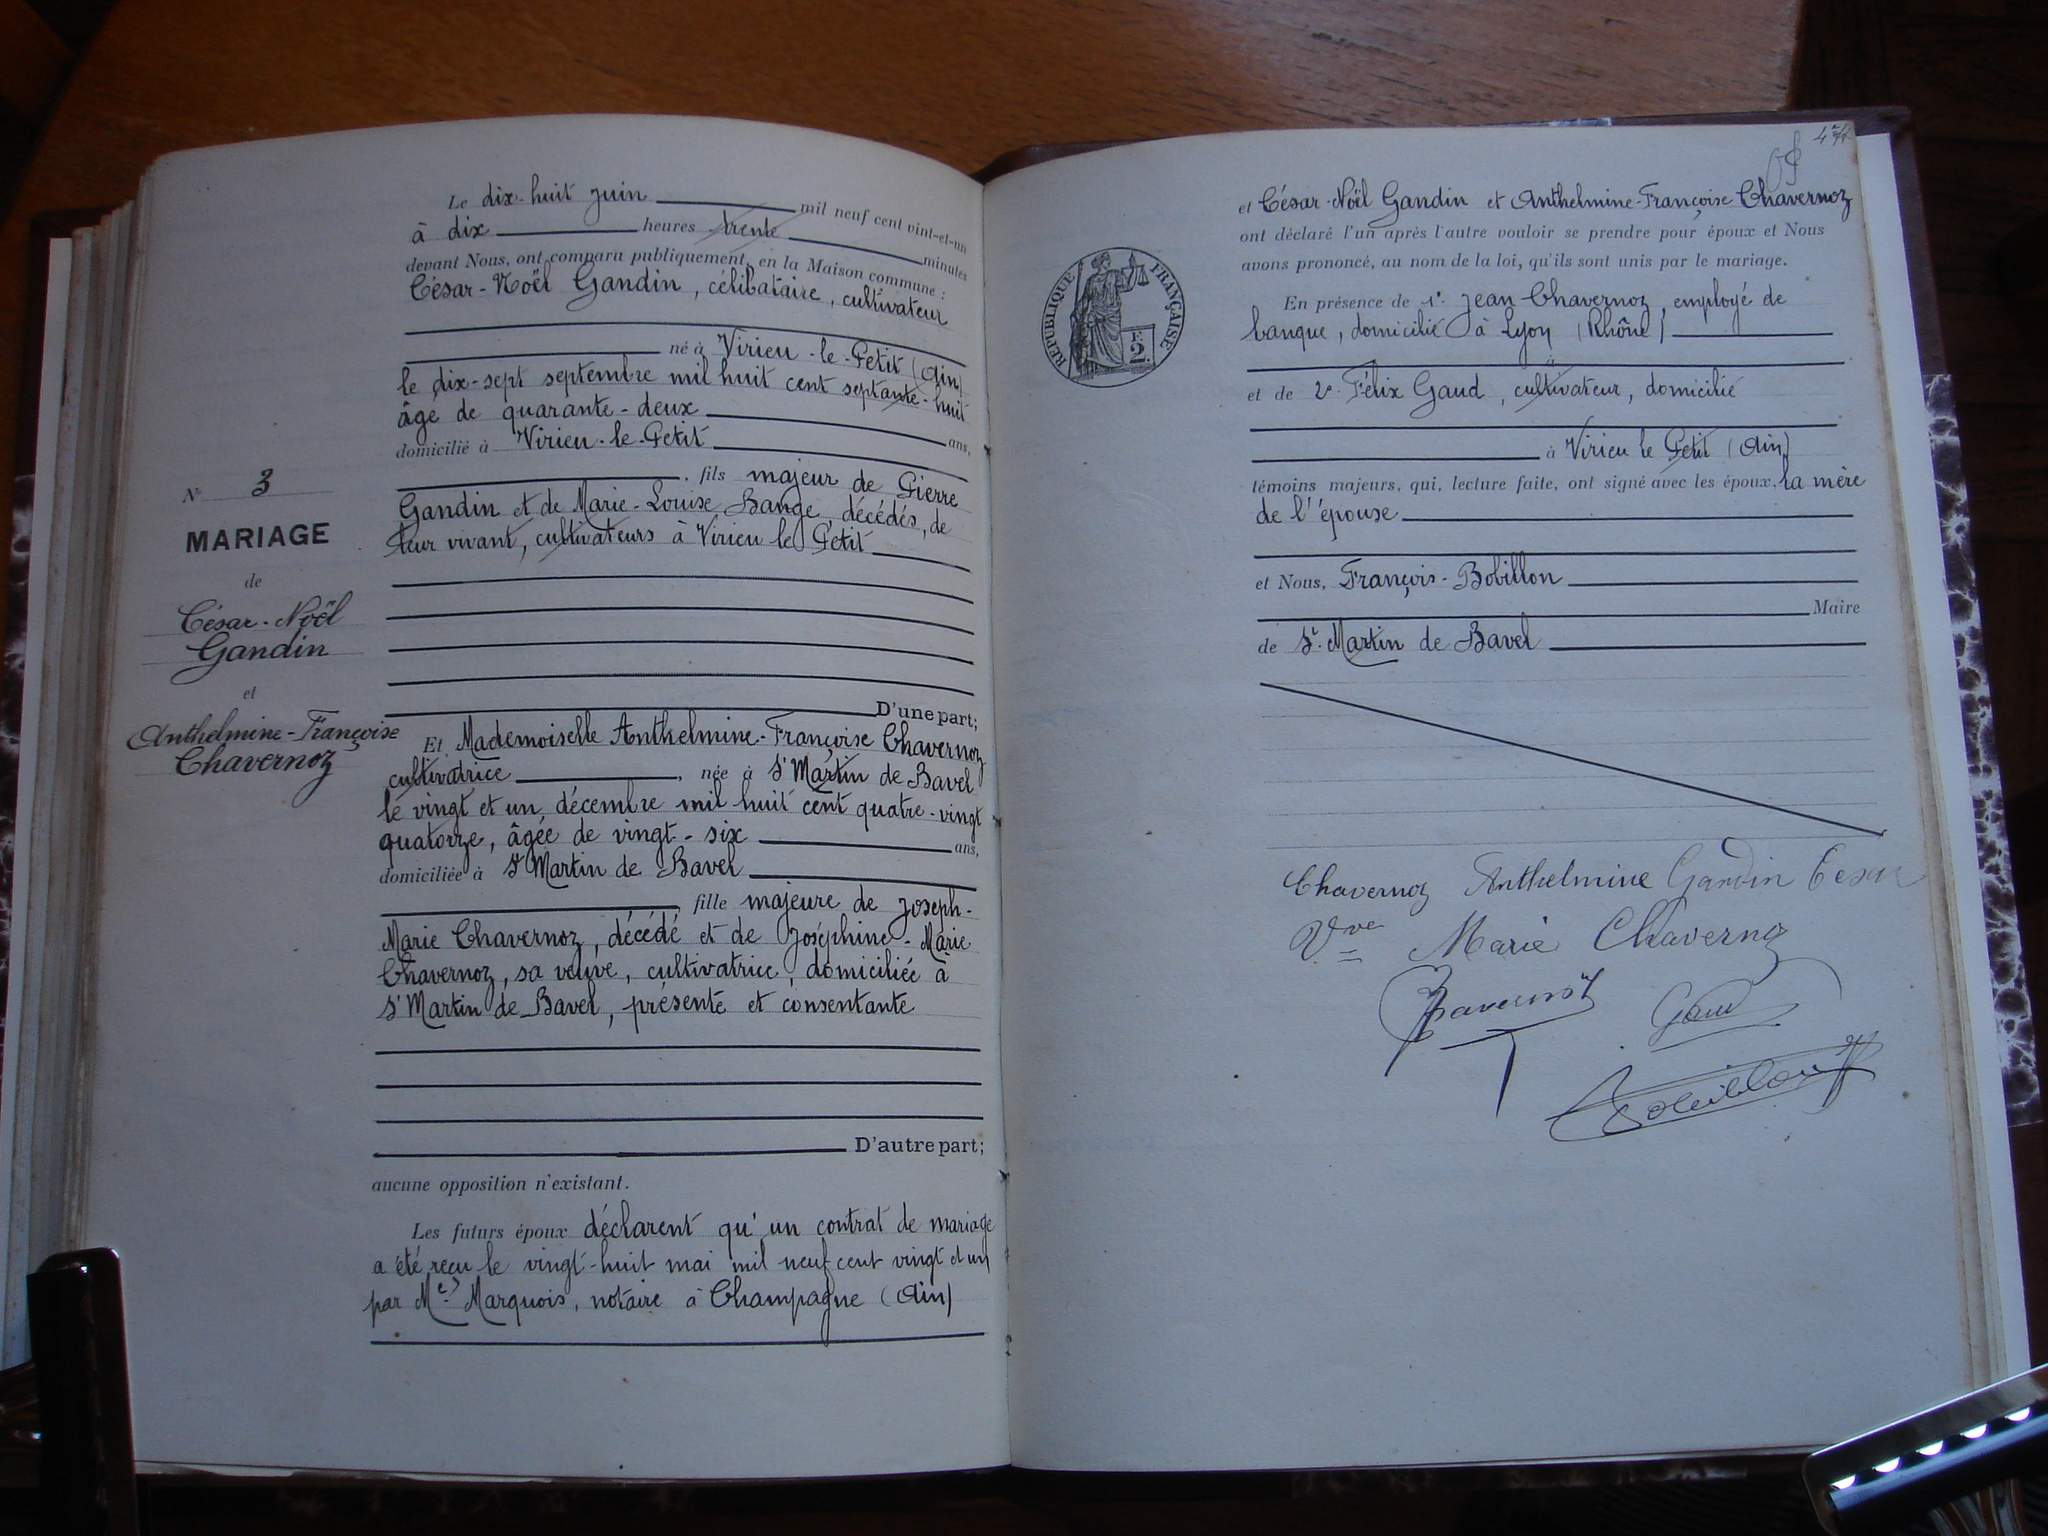 Le dix-huit juin mil neuf cent vint-et-un
à dix heures trente minutes
devant Nous, ont comparu publiquement, en la Maison commune :
César-Noël Gandin, célibataire, cultivateur
né à Virieu-le-Petit (Ain)
le dix-sept septembre mil huit cent septante-huit
âgé de quarante-deux ans,
domicilié à Virieu-le-Petit
, fils majeur de Pierre
Gandin et de Marie-Louise Bange décédés, de
leur vivant, cultivateurs à Virieu le Petit
D'une part;
N° 3
MARIAGE
de
César-Noël
Gandin
et
Anthelmine-Françoise
Chavernoz
Et Mademoiselle Anthelmine-Françoise Chavernoz
cultivatrice, née à St Martin de Bavel
le vingt et un décembre mil huit cent quatre-vingt
quatorze, âgée de vingt-six ans,
domiciliée à St Martin de Bavel
, fille majeure de Joseph-
Marie Chavernoz, décédé et de Joséphine-Marie
Chavernoz, sa veuve, cultivatrice, domiciliée à
St Martin de Bavel, présente et consentante
D'autre part;
aucune opposition n'existant.
Les futurs époux déclarent qu'un contrat de mariage
a été reçu le vingt-huit mai mil neuf cent vingt et un
par Me Marquois, notaire à Champagne (Ain)
et César-Noël Gandin et Anthelmine-Françoise Chavernoz
ont déclaré l'un après l'autre vouloir se prendre pour époux et Nous
avons prononcé, au nom de la loi, qu'ils sont unis par le mariage.
RÉPUBLIQUE FRANÇAISE
F.
2.
En présence de 1° Jean Chavernoz, employé de
banque, domicilié à Lyon (Rhône)
et de 2° Félix Gaud, cultivateur, domicilié
à Virieu le Petit (Ain)
témoins majeurs, qui, lecture faite, ont signé avec les époux, la mère
de l'épouse
et Nous, François-Bobillon
Maire
de St-Martin de Bavel
Chavernoz Anthelmine Gandin Cesar
Vve Marie Chavernoz
Chavernoz Gaud
Bobillon